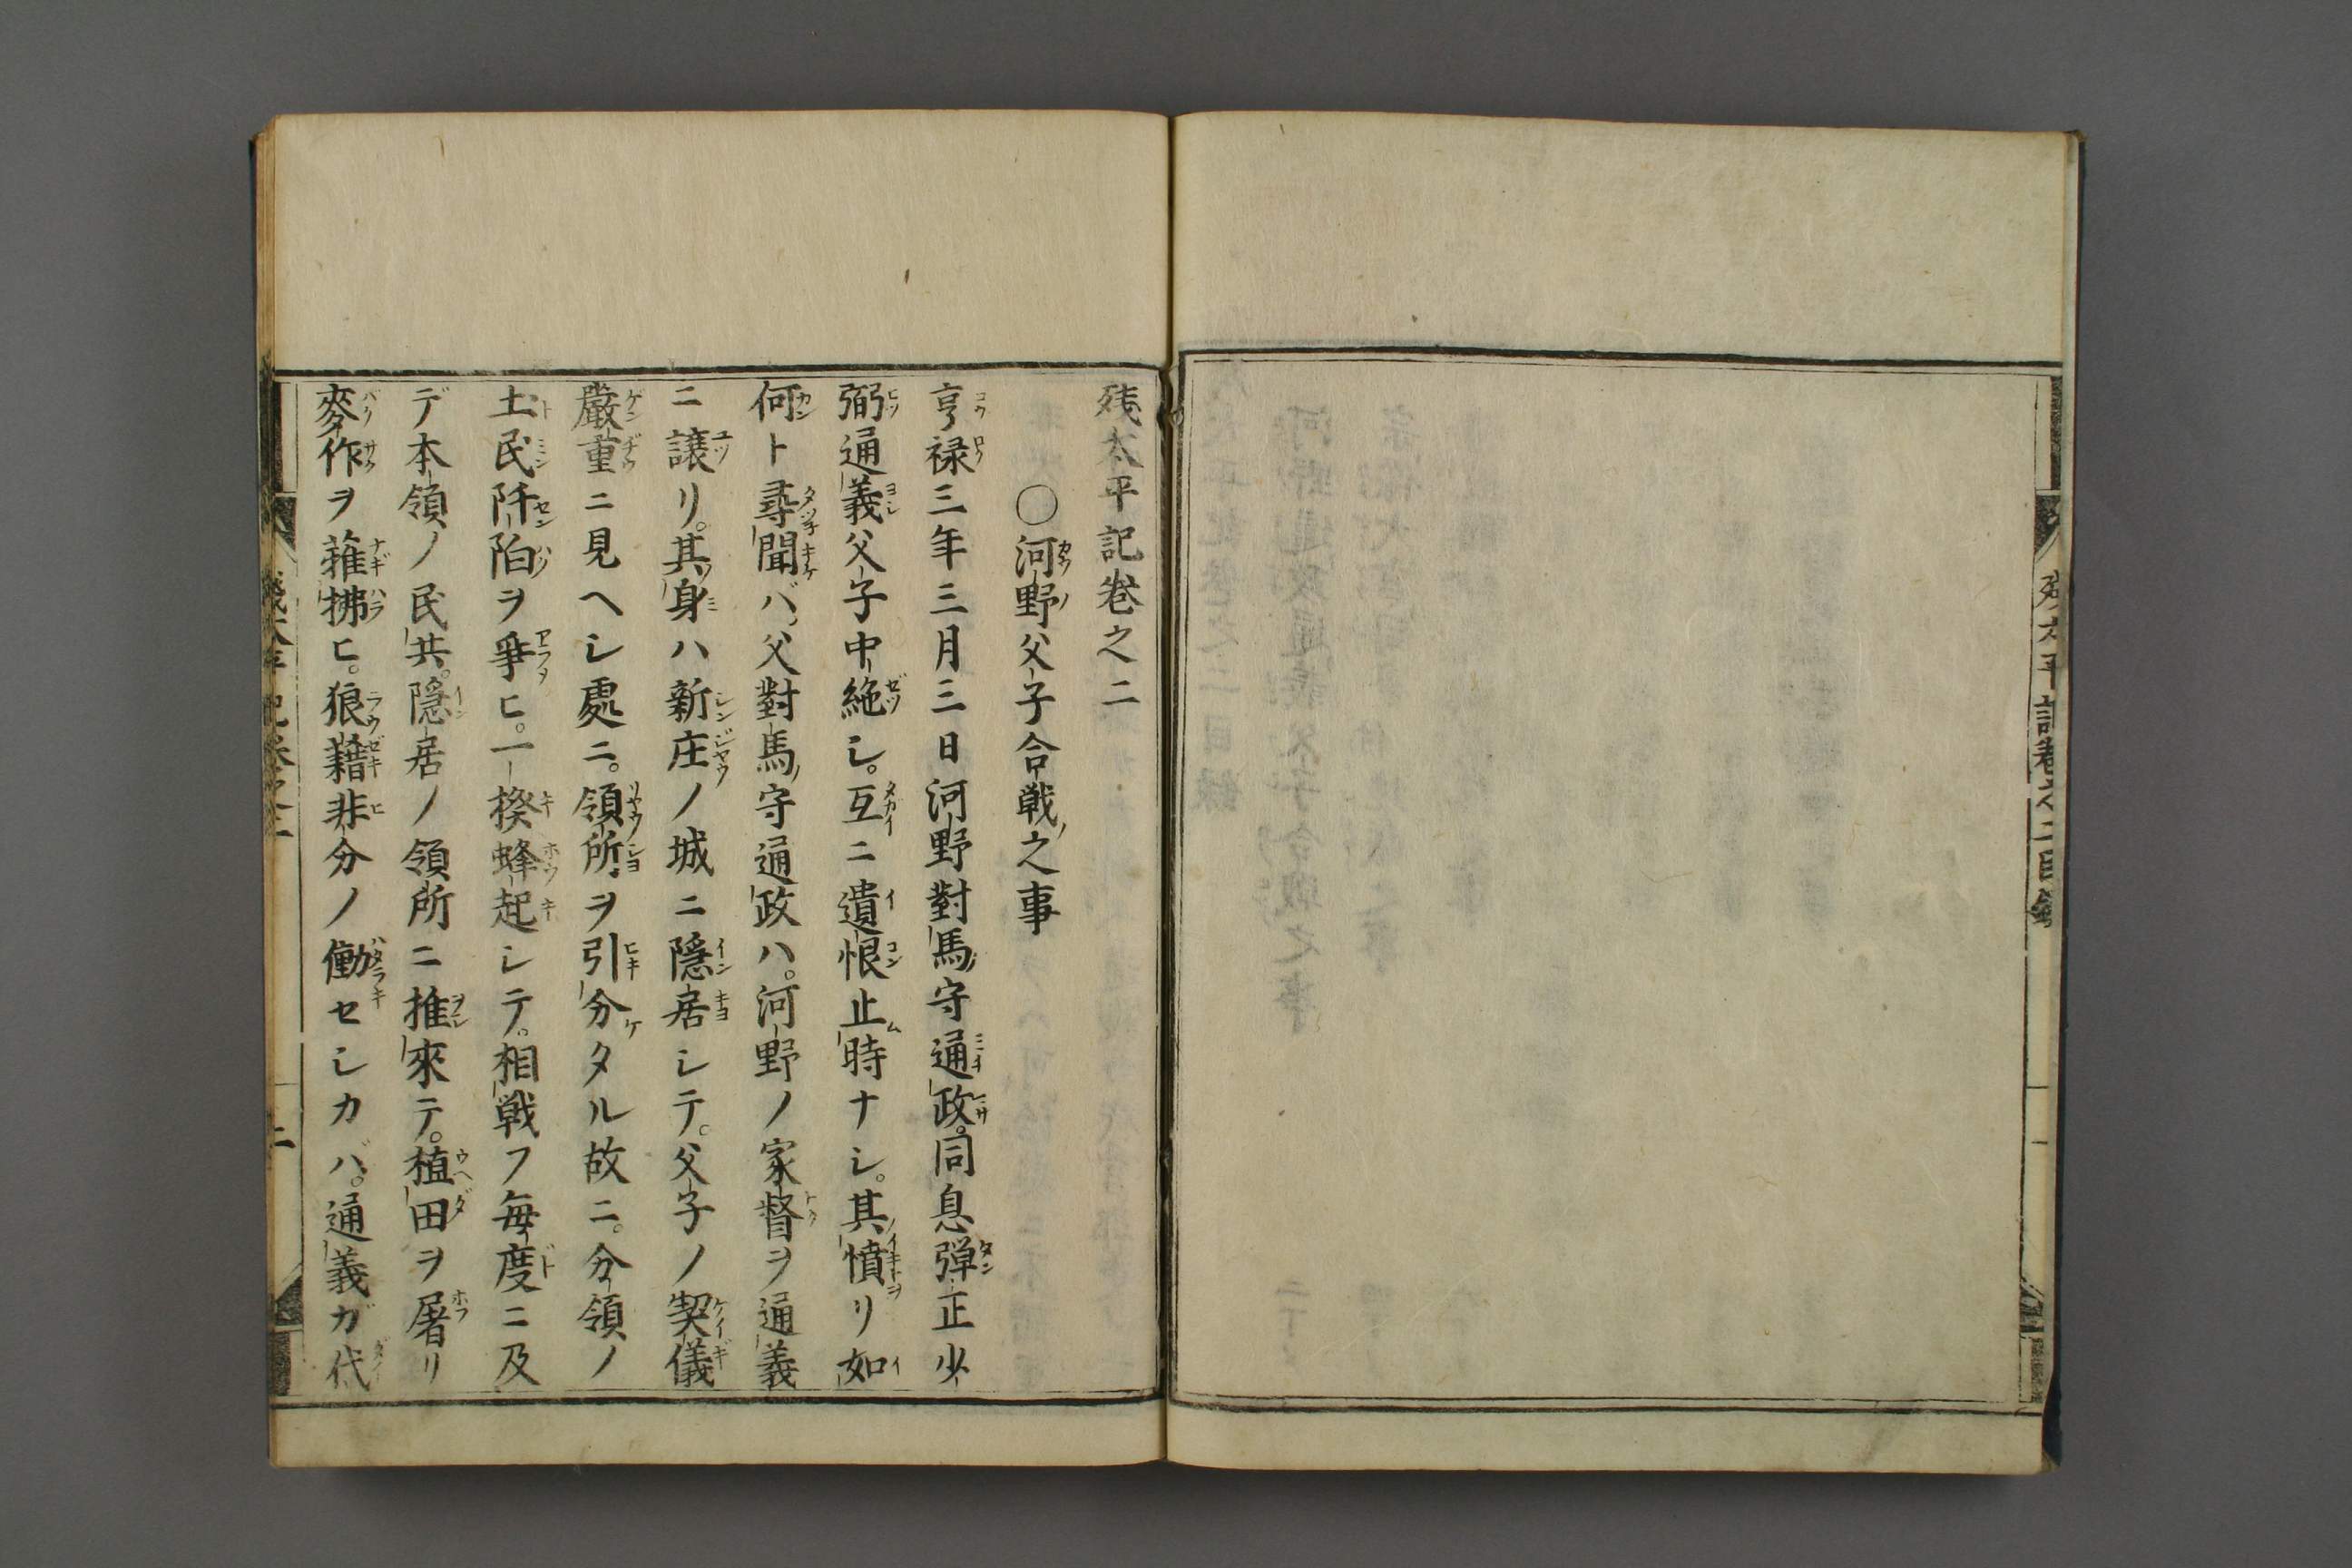 残太平記巻之二目録
残太平記巻之二
〇河野父子合戦之事
亨禄三年三月三日河野對馬守通政。同息弾正少
弼通義父子中絶シ。互ニ遺恨止時ナシ。其憤リ如
何ト尋聞バ。父對馬守通政ハ。河野ノ家督ヲ通義
ニ譲リ。其身ハ新庄ノ城ニ隠居シテ。父子ノ契儀
嚴重ニ見ヘシ處ニ。領所ヲ引分ケタル故ニ。分領ノ
土民阡陌ヲ爭ヒ。一揆蜂起シテ。相戦フ毎度ニ及
デ本領ノ民共。隠居ノ領所ニ推來テ。植田ヲ屠リ
麥作ヲ薙拂ヒ。狼藉非分ノ働セシカバ。通義ガ代
残太平記巻之二
二